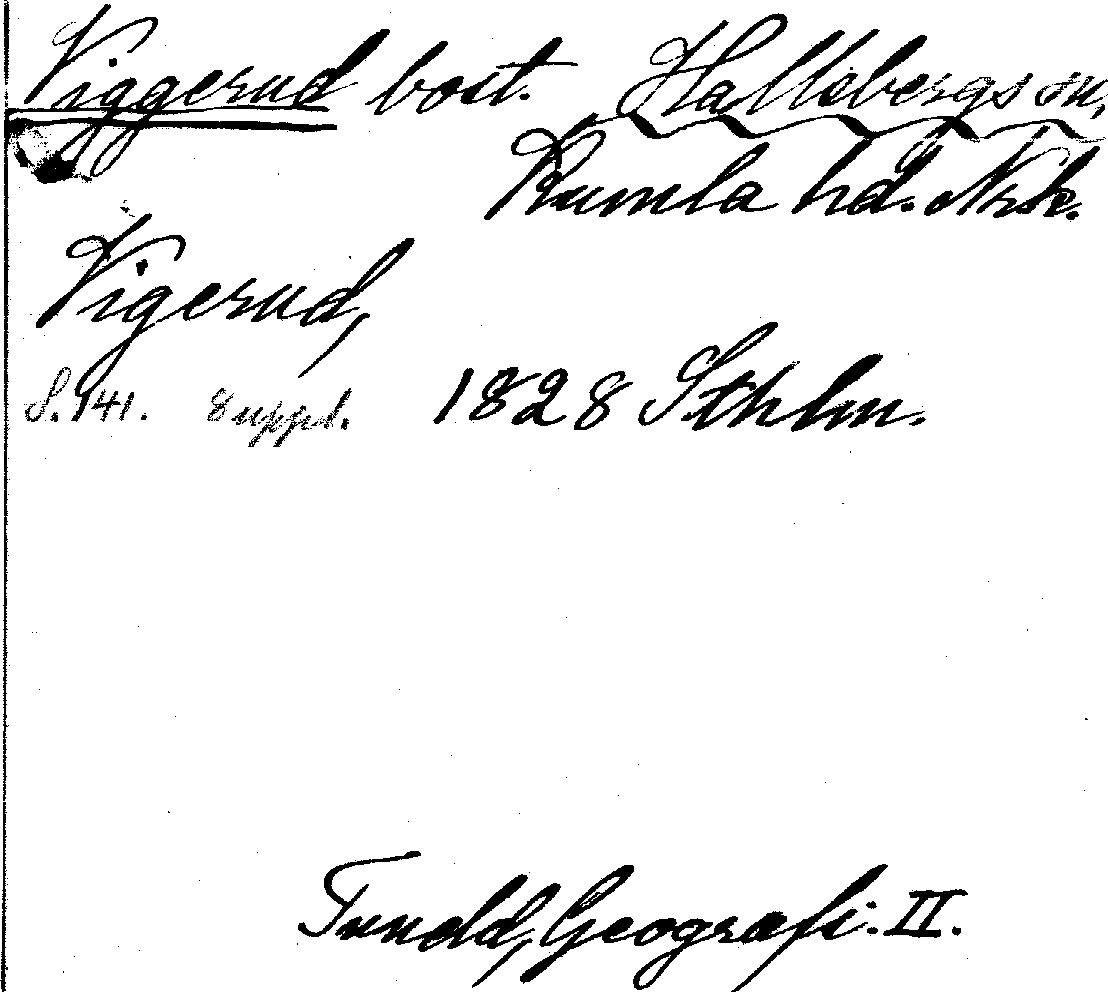 Viggerud bost. Hallsbergs sn,
Kumla hd. Nrk.
Vigerud,
S. 141. Suppl. 1828 Sthlm.
Tuneld, Geografi. II.